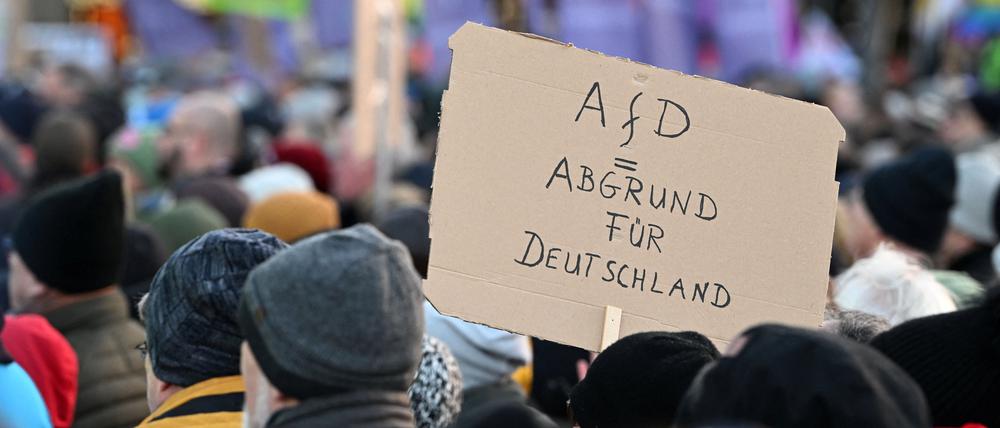 AfD
=
ABGRUND
FÜR
DEUTSCHLAND